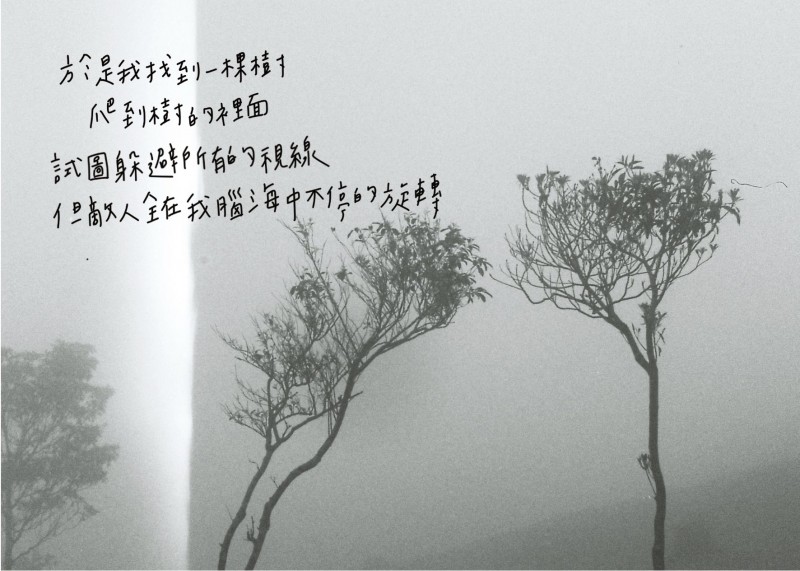 於是我找到一棵樹
爬到樹的裡面
試圖躲避所有的視線
但敵人全在我腦海中不停的旋轉